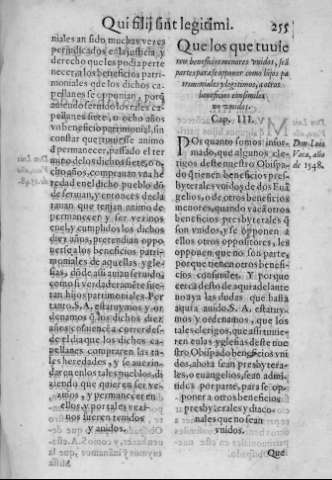 Qui filij sint legitimi. 255
niales an sido muchas vezes
perjudicados en la justicia, y
derecho que les podia perte
necer, a los beneficios patri-
moniales que los dichos ca-
pellanes se oponian, porq̃
auiendo seruido los tales ca-
pellanes siete, o ocho años
vn beneficio patrimonial, sin
constar que tuuiesse animo
d̃ permanecer, passado el ter
mino de los dichos siete, o
ocho años, comprauan vna he
redad en el dicho pueblo dõ
de seruian, y entonces decla
rauan que tenian animo de
permanecer y ser vezinos
en el, y cumplidos los dichos
diez años, pretendian oppo
nerse a los beneficios patri-
moniales de aquellas ygle
sias, dõde assi auian seruido,
como si verdaderamẽte fue-
ran hijos patrimoniales. Por
tanto. S. A. estatuymos y or
denamos q̃ los dichos diez
años cõsuencia a correr des-
de el dia que los dichos ca-
pellanes compraren las ta-
les heredades, y se auezin-
daren en los tales pueblos, di
ziendo que quieren ser ve-
zinos, y permanecer en
ellos, y por tales vezi-
nos fueren tenidos
y auidos.
Que los que tuuie
ren beneficios menores vnidos, seã
partes para se opponer como hijos pa
trimoniales y legitimos, a otros
beneficios consimiles
no vnidos.
Cap. III.
POr quanto somos infor
mado, que algunos cle
rigos deste nuestro Obispa
do q̃ tienen beneficios pres
byterales vnidos de dos Euã
gelios, o de otros beneficios
menores, quando vaca otros
beneficios presbyterales q̃
son vnidos, y se opponen a
ellos otros oppositores, les
opponen que no son parte,
porque tienen otros benefi-
cios consimiles. Y porque
cerca desto de aqui adelante
no aya las dudas que hasta
aqui a auido. S. A. estatuy-
mos y ordenamos, que los
tales clerigos, que assi tuuie-
ren en las yglesias deste nue
stro Obispado beneficios vni
dos, ahora sean presbytera-
les, o euangelios, sean admi-
tidos por parte, para se op-
poner a otros beneficios
presbyterales y diaco-
nales que no sean
vnidos.
Don Luis
Vaca, año
de 1548.
Que